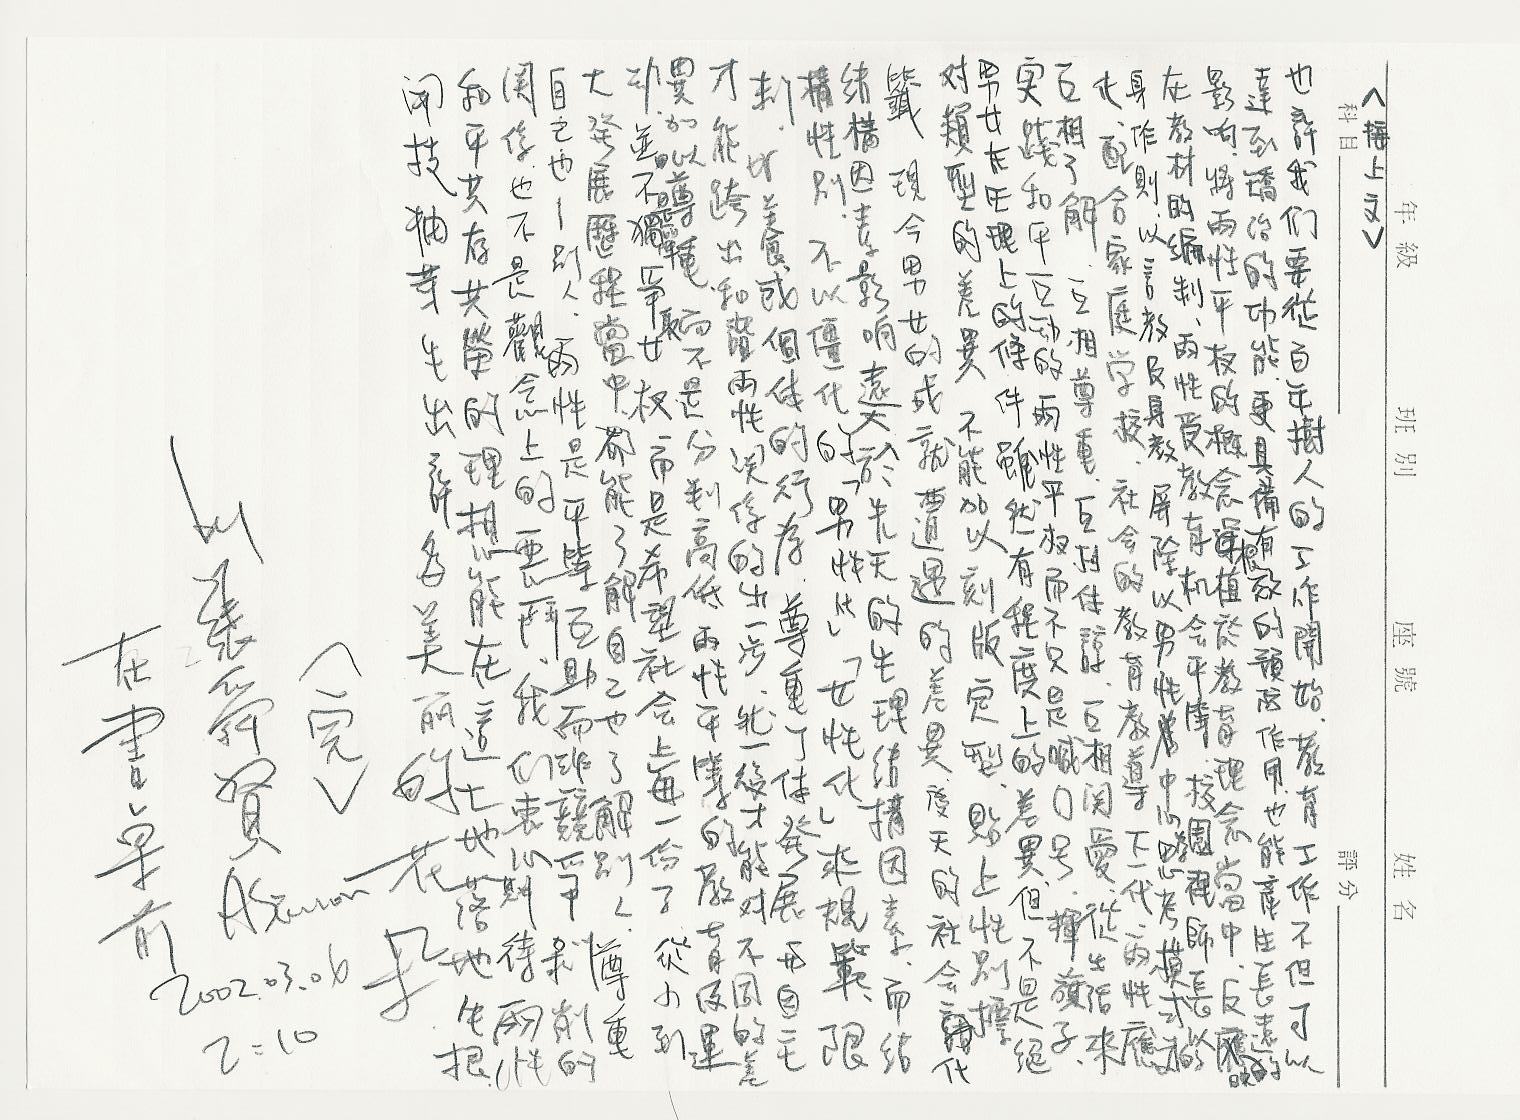 年級 班別 座號 姓名
科目 評分
<接上文>
也許我们要從百年樹人的工作開始．教育工作不但可以
達到矯治的功能．更具備有效的預防作用也能產生長遠的
影响．將兩性平权的概念深植於教育理念當中．反應
在教材的編制．兩性受教育机会平等．校園裡師長以
身作則．以言教及身教 屏除以男性為中心思考模式的
化．配合家庭学校．社会的教育教導下一代．兩性應
互相了解．互相尊重．互相体諒．互相関愛．從生活來
实践和平互动的兩性平权而不只是喊口号．揮旗子．
男女在生理上的條件雖然有程度上的差異．但不是絕
对類型的差異 不能加以刻版定型．貼上性別標
籤 現今男女的成就遭遇的差異．後天的社会化
结構因素影响遠大於先天的生理结構因素．而结
構性別．不以僵化的「男性化」「女性化」來規範、限
制．性美食或個体的行為．尊重個体發展与自主
才能跨出和諧兩性関係的出一步．然後才能对不同的差
異加以尊重 而不是分判高低 兩性平等的教育及運
动．並不獨爭女权 而是希望社会上每一份子 從小到
大發展歷程當中．都能了解自己也了解別人．尊重
自己也別人．兩性是平等互助而非競爭剥削的
関係．也不是觀念上的惡鬥．我们衷心期待兩性
和平共存共榮的理想能在這土地落地生根．
開枝抽芽生出許多美丽的花朵
<完>
張舜賢
在書桌前
2002.03.06
2:10